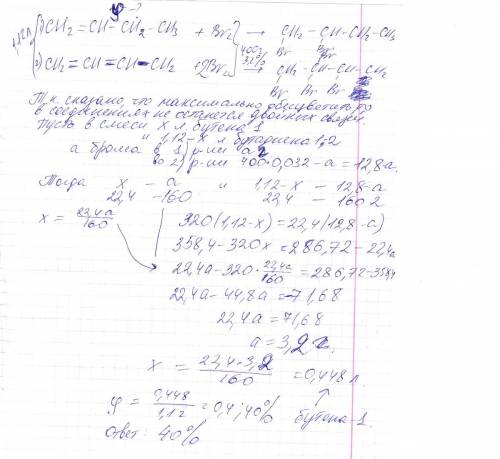 φ - ?
1,12л 1) CH₂ = CH - CH₂ - CH₃ + Br₂ → CH₂ - CH - CH₂ - CH₃
Br Br
2) CH₂ = CH = CH - CH₂ + 2Br₂ 400г 3,2% → CH₂ - CH - CH - CH₂
Br Br Br Br
Т.к. сказано, что максимально обесцветить, то
в соединениях не останется двойных связей.
Пусть в смеси x л бутена 1
" 1,12-x л бутадиена 1,2
а брома в 1) р-ии а г
во 2) р-ии 400·0,032 - a = 12,8 - a.
Тогда x - a " 1,12-x - 12,8-a
22,4 - 160 22,4 - 160·2
x = 22,4a/160 320(1,12-x) = 22,4(12,8-a)
358,4 - 320x = 286,72 - 22,4a
22,4a - 320·22,4a/160 = 286,72 - 358,4
22,4a - 44,8a = -71,68
22,4a = 71,68
a = 3,2 г.
x = 22,4·3,2/160 = 0,448 л
φ = 0,448/1,12 = 0,4; 40% бутена-1.
Ответ: 40%